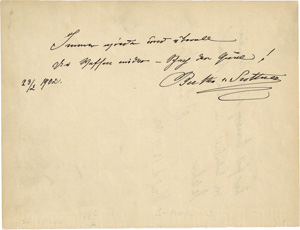 Immer wieder und überall
Die Waffen nieder – der !
23/2 1902. Bertha v. Suttner